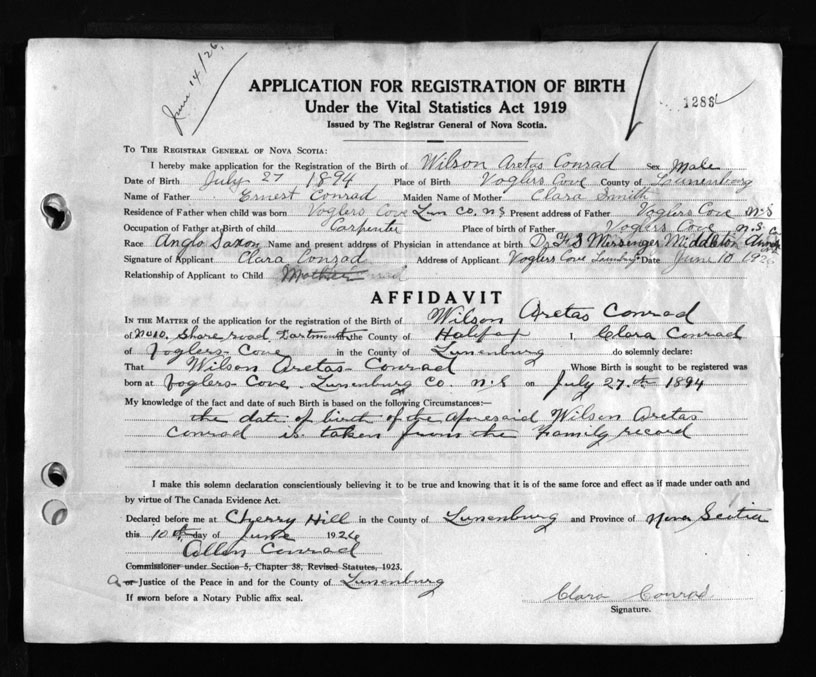 June 14/26.
APPLICATION FOR REGISTRATION OF BIRTH
Under the Vital Statistics Act 1919
Issued by The Registrar General of Nova Scotia.
1286
TO THE REGISTRAR GENERAL OF NOVA SCOTIA:
I hereby make application for the Registration of the Birth of Wilson Aretas Conrad Sex Male
Date of Birth July 27 1894 Place of Birth Voglers Cove County of Lunenburg
Name of Father Ernest Conrad Maiden Name of Mother Clara Smith
Residence of Father when child was born Voglers Cove Lun Co, NS Present address of Father Voglers Cove NS
Occupation of Father at Birth of child Carpenter Place of birth of Father Voglers Cove N.S.
Race Anglo Saxon Name and present address of Physician in attendance at birth Dr F S Messinger Middleton
Signature of Applicant Clara Conrad Address of Applicant Voglers Cove Date June 10 1926
Relationship of Applicant to Child Mother
AFFIDAVIT
IN THE MATTER of the application for the registration of the Birth of Wilson Aretas Conrad
of No 10. Shore road Dartmouth the County of Halifax I, Clara Conrad
of Voglers Cove in the County of Lunenburg do solemnly declare:
That Wilson Aretas Conrad Whose Birth is sought to be registered was
born at Voglers Cove. Lunenburg Co. N.S on July 27th 1894
My knowledge of the fact and date of such Birth is based on the following Circumstances:—
the date of birth of the aforesaid Wilson Aretas
Conrad is taken from the Family record
I make this solemn declaration conscientiously believing it to be true and knowing that it is of the same force and effect as if made under oath and
by virtue of The Canada Evidence Act.
Declared before me at Cherry Hill in the County of Lunenburg and Province of Nova Scotia
this 10th day of June 1926
Allen Conrad
Commissioner under Section 5, Chapter 38, Revised Statutes, 1923.
a or Justice of the Peace in and for the County of Lunenburg
If sworn before a Notary Public affix seal.
Clara Conrad
Signature.